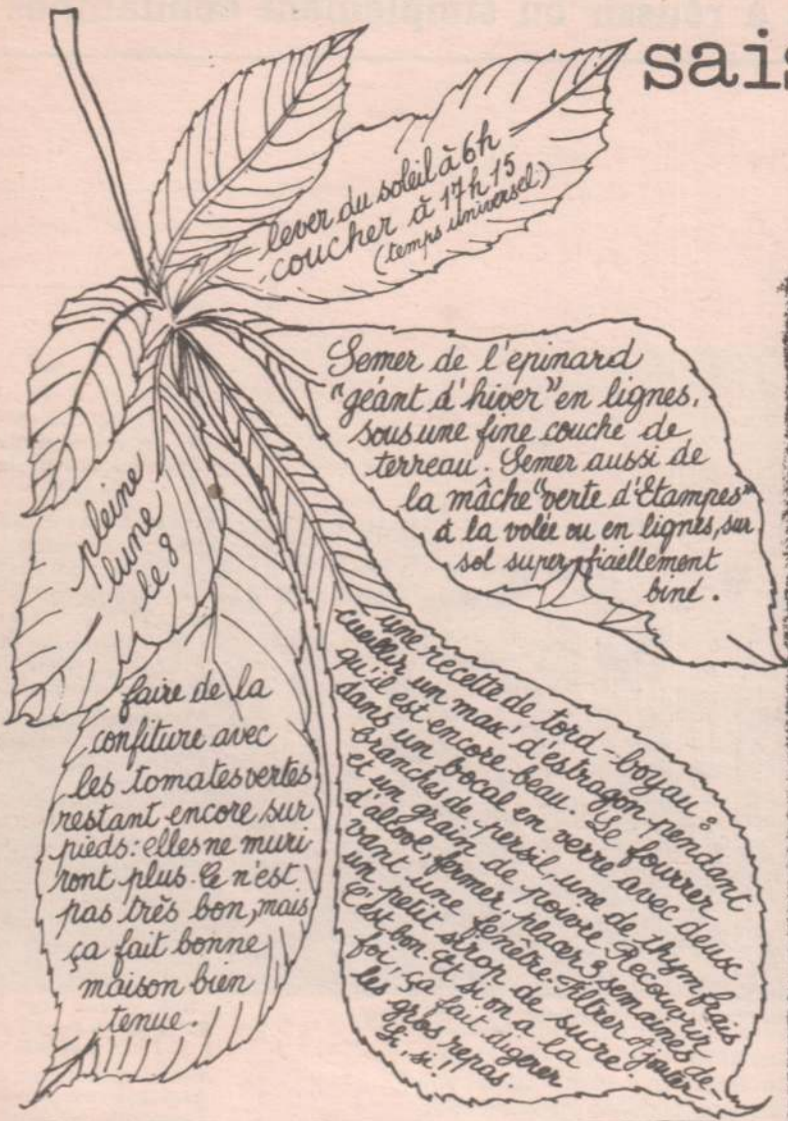 sais
lever du soleil à 6h
coucher à 17h15
(temps universel)
Semer de l'epinard
"géant d'hiver" en lignes,
sous une fine couche de
terreau. Semer aussi de
la mâche "verte d'Etampes"
à la volée ou en lignes, sur
sol superficiellement
biné.
pleine
lune
le 8
faire de la
confiture avec
les tomates vertes
restant encore sur
pieds: elles ne muri
ront plus. Ce n'est
pas très bon, mais
ça fait bonne
maison bien
tenue.
une recette de tord-boyau:
cueillir un max' d'estragon pendant
qu'il est encore beau. Le fourrer
dans un bocal en verre avec deux
branches de persil, une de thym frais
et un grain de poivre. Recouvrir
d'alcool, fermer, placer 3 semaines de-
vant une fenêtre. Filtrer. Ajouter
un petit sirop de sucre.
C'est bon. Et si on a la
foi, ça fait digérer
les gros repas.
Si, si!